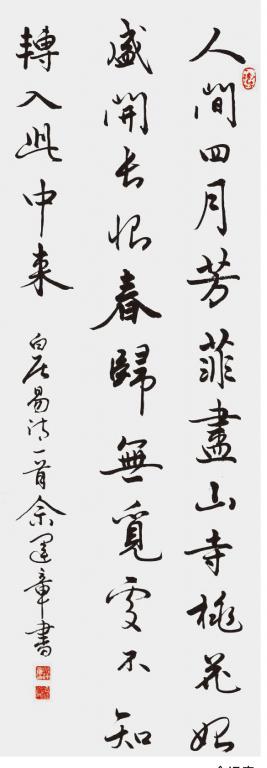 人間四月芳菲盡山寺桃花始
盛開長恨春歸無覓處不知
轉入此中来 白居易詩一首余運章書